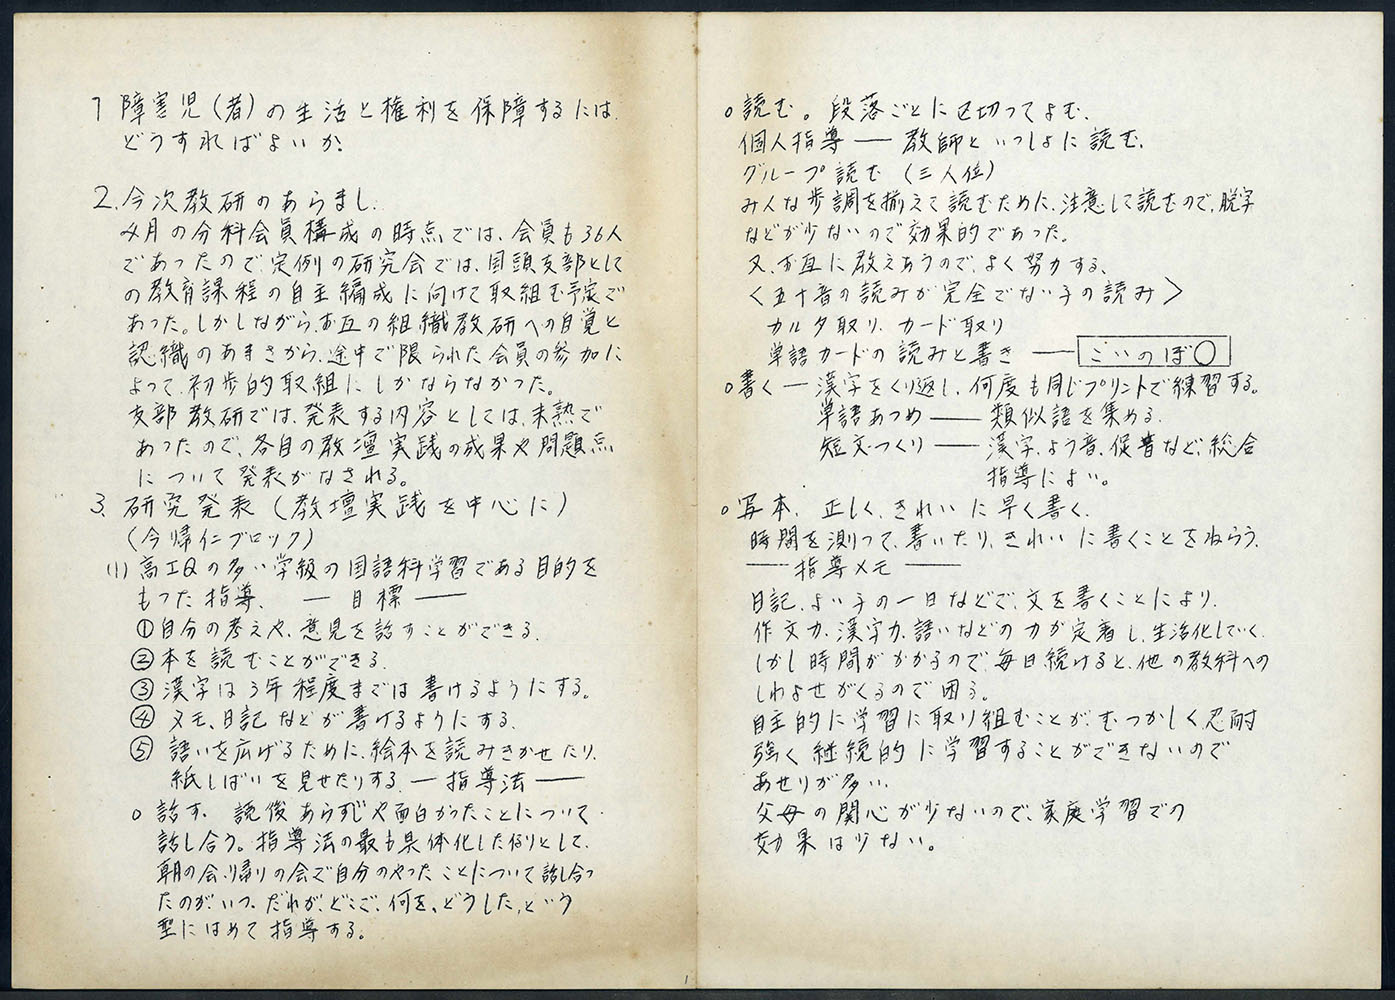 1 障害児（者）の生活と権利を保障するには、
どうすればよいか。
2. 今次教研のあらまし.
4月の分科会員構成の時点では、会員も36人
であったので、定例の研究会では、国頭支部として
の教育課程の自主編成に向けて取組む予定で
あった。しかしながら、お互の組織教研への自覚と
認織のあまさから、途中で限られた会員の参加に
よって、初歩的取組にしかならなかった。
支部教研では、発表する内容としては、未熟で
あったので、各自の教壇実践の成果や問題点
について発表がなされる。
3. 研究発表（教壇実践を中心に）
（今帰仁ブロック）
(1) 高IQの多い学級の国語科学習である目的を
もった指導、 ― 目標 ――
① 自分の考えや、意見を話すことができる.
② 本を読むことができる.
③ 漢字は3年程度までは書けるようにする。
④ メモ、日記などが書けるようにする.
⑤ 語いを広げるために、絵本を読みきかせたり、
紙しばいを見せたりする. ― 指導法 ――
○ 話す. 読後あらすじや面白かったことについて
話し合う。指導法の最も具体化した例として、
朝の会、帰りの会で自分のやったことについて話し合っ
たのが、いつ、だれが、どこで、何を、どうした、という
型にはめて指導する。
○ 読む。段落ごとに区切ってよむ.
個人指導 ―― 教師といっしょに読む、
グループ読む（三人位）
みんな歩調を揃えて読むために、注意して読むので、脱字
などが少ないので効果的であった。
又、お互に教えあうので、よく努力する、
＜五十音の読みが完全でない子の読み＞
カルタ取り、カード取り
単語カードの読みと書き ―― こいのぼ○
○ 書く ― 漢字をくり返し、何度も同じプリントで練習する。
単語あつめ ―― 類似語を集める.
短文つくり ―― 漢字、よう音、促音など、総合
指導によい。
○ 写本. 正しく、きれいに早く書く.
時間を測って、書いたり、きれいに書くことをねらう.
―― 指導メモ ――
日記、よい子の一日などで、文を書くことにより、
作文力、漢字力、語いなどの力が定着し、生活化していく.
しかし時間がかかるので、毎日続けると、他の教科への
しわよせがくるので困る。
自主的に学習に取り組むことが、むつかしく、忍耐
強く継続的に学習することができないので
あせりが多い.
父母の関心が少ないので、家庭学習での
効果は少ない。
1